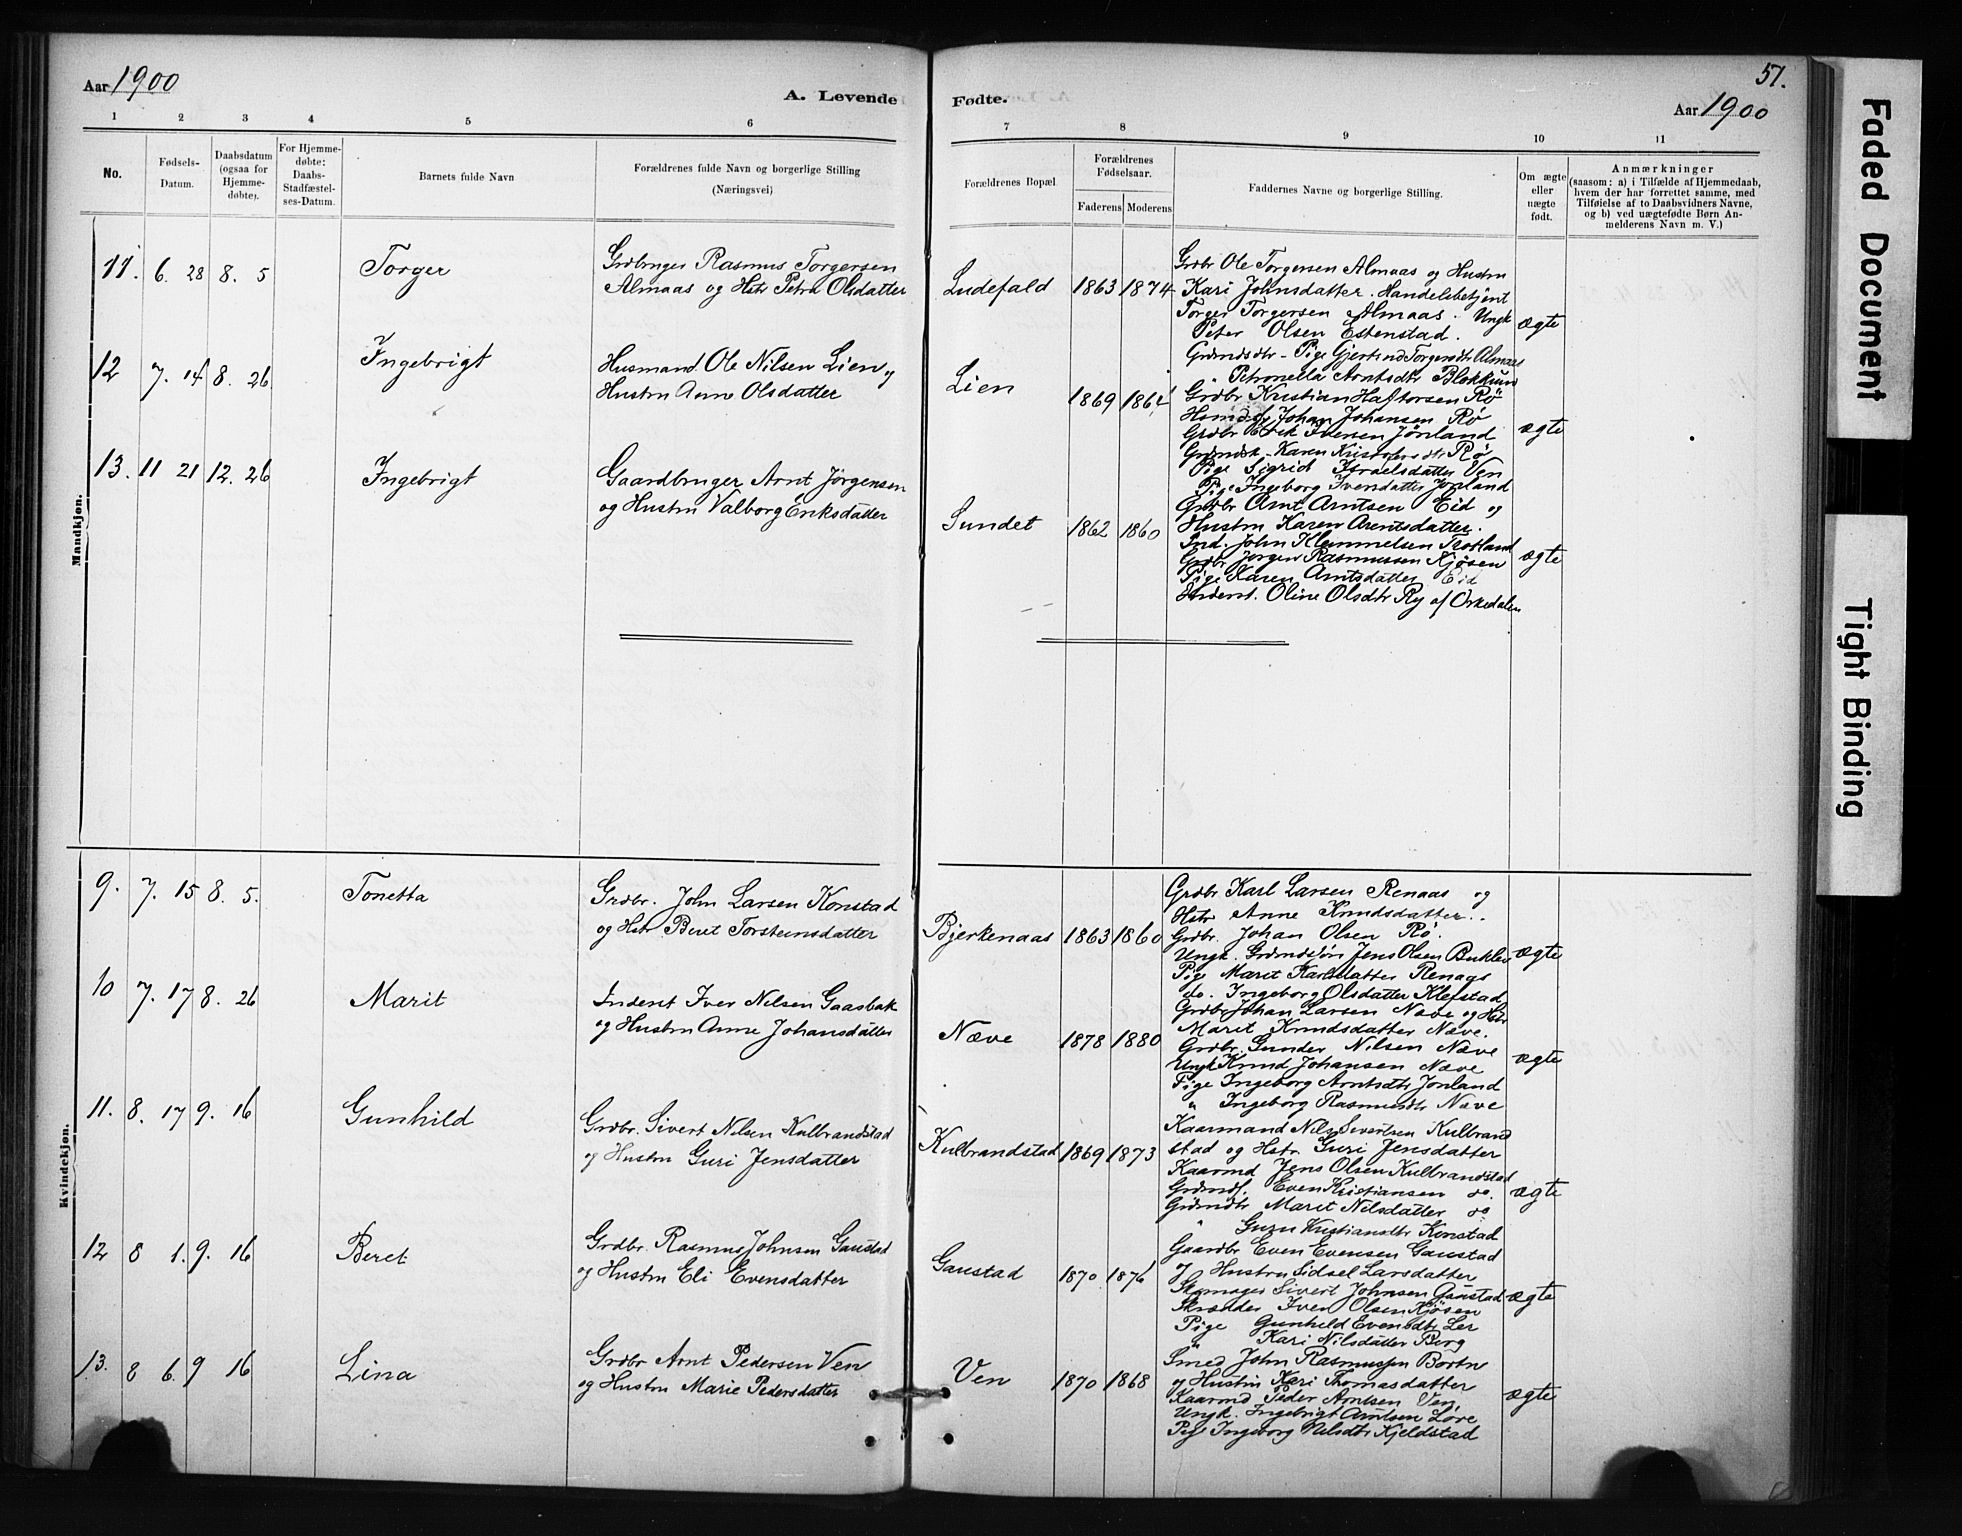 Aar 1900
A. Levende Fødte.
51.
Aar 1900
1 2 3 4 5 6 7 8 9 10 11
No.
Fødsels-Datum.
Daabsdatum (ogsaa for Hjemme-døbte).
For Hjemme-døbte: Daabs-Stadfæstel-ses-Datum.
Barnets fulde Navn
Forældrenes fulde Navn og borgerlige Stilling (Næringsvei)
Forældrenes Bopæl
Forældrenes Fødselsaar.
Faderens Moderens
Faddernes Navne og borgerlige Stilling.
Om ægte eller uægte født.
Anmærkninger
(saasom: a) i Tilfælde af Hjemmedaab,
hvem der har forrettet samme, med
Tilføielse af to Daabsvidners Navne,
og b) ved uægtefødte Børn An-
melderens Navn m. V.)
Mandkjøn.
11. 6. 28 8. 5 Torger
Grdbruger Rasmus Torgersen
Almaas og Hstr Petra Olsdatter
Ludefald 1863 1874
Grdbr Ole Torgersen Almaas og Hustru
Kari Johnsdatter. Handelsbetjent
Torger Torgersen Almaas. Ungk
Peter Olsen Estenstad.
Grdmdsdtr - Pige Torgersdtr Almaas
" Petronella Arntsdtr
ægte
12 7. 14 8. 26 Ingebrigt
Husmand Ole Nilsen Lien og
Hustru Anne Olsdatter
Lien 1869 1864
Grdbr Kristian Haftorsen Rø
Johan Johansen Rø
Grdbr Erik Iversen Jønland
Karen Rø
Pige Sigrid Israelsdatter Ven
Pige Ingeborg Iversdatter Jønland
ægte
13. 11 21 12. 26 Ingebrigt
Gaardbruger Arnt Jørgensen
og Hustru Valborg Eriksdatter
Sundet 1862 1860
Grdbr Arnt Arntsen Eid og
Hustru Karen Arentsdatter.
Ind. John Klemmetsen
Grdbr Jørgen Rasmussen Kjøsen
Pige Karen Arntsdatter Eid
Inderst. Oline Olsdtr Ry af Orkedalen
ægte
Kvindekjøn.
9. 7. 15 8. 5. Tonetta
Grdbr. John Larsen Konstad
og Hstr Beret Torsteinsdatter
Bjerkenaas 1863 1860
Grdbr Karl Larsen Renaas og
Hstr Anne Knudsdatter.
Grdbr. Johan Olsen Rø.
Ungk. Grdmdssøn Jens Olsen
Pige Marit Karlsdatter Renaas
do. Ingeborg Olsdatter Klefstad
ægte
10 7. 17 8. 26 Marit
Inderst Iver Nilsen Gaasbak
og Hustru Anne Johansdatter
Næve 1878 1880
Grdbr Johan Larsen Næve og Hstr
Marit Knudsdatter Næve.
Grdbr. Gunder Nilsen Næve
Ungk Knud Johansen Næve
Pige Ingeborg Arntsdtr Jønland
" Ingeborg Rasmusdtr Næve
ægte
11. 8. 17 9. 16 Gunhild
Grdbr. Sivert Nilsen Kulbrandstad
og Hustru Guri Jensdatter
Kulbrandstad 1869 1873
Kaarmand Nils Sivertsen Kulbrand
stad og Hstr. Guri Jensdatter
Kaarmd Jens Olsen Kulbrandstad
Grdmds. Even Kristiansen do.
Grdmdsdtr Marit Nilsdatter do
" Guru Kristiansdtr Konstad
ægte
12 8 1. 9. 16 Beret
Grdbr. Rasmus Johnsen Gaustad
og Hustru Eli Evensdatter
Gaustad 1870 1876
Gaardbr Even Evensen Gaustad
og Hustru Sidsel Larsdatter
Skomager Sivert Johnsen Gaustad
Skrædder Iver Olsen Kjøsen
Pige Gunhild Evensdtr Ler
" Kari Nilsdatter Berg
ægte
13. 8 6. 9 16 Lina
Grdbr Arnt Pedersen Ven
og Hustru Marie Pedersdatter
Ven 1870 1868
Smed John Rasmussen
og Hustru Kari Thomasdatter
Kaarmd Peder Arntsen Ven
Ungk. Ingebrigt Arntsen Løre
Pige Ingeborg Nilsdtr Kjeldstad
ægte
Faded Document
Tight Binding